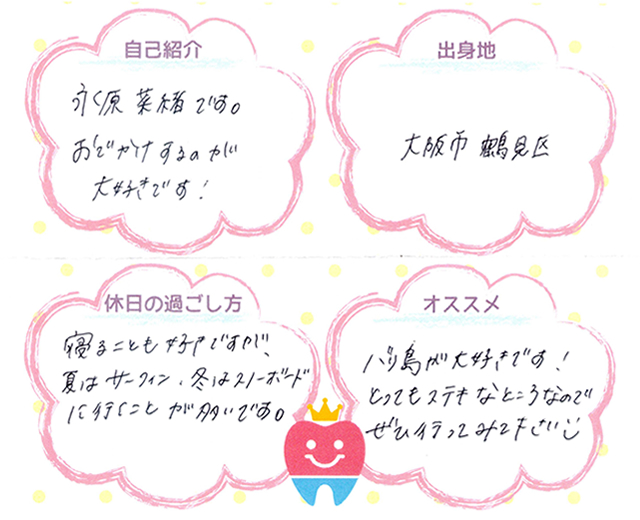 自己紹介
永原 菜緒です。
おでかけするのが
大好きです!
出身地
大阪市 鶴見区
休日の過ごし方
寝ることも好きですが、
夏はサーフィン、冬はスノーボード
に行くことが多いです。
オススメ
バリ島が大好きです!
とってもステキなところなので
ぜひ行ってみて下さい